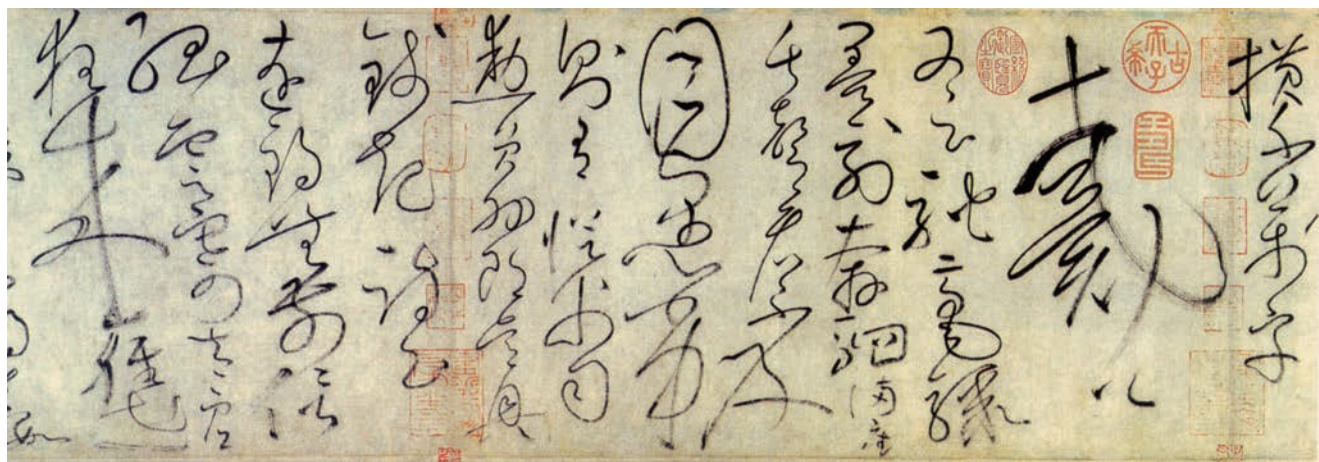 橫千萬字
戴公
又云馳毫驟
墨列奔駟滿座
失聲看不及
目愚劣
則有從父司
勳員外郎吳興
錢起詩云
遠錫無前侶
孤雲寄太虛
狂來輕世
古希天子
壽
宣統御覽之寶